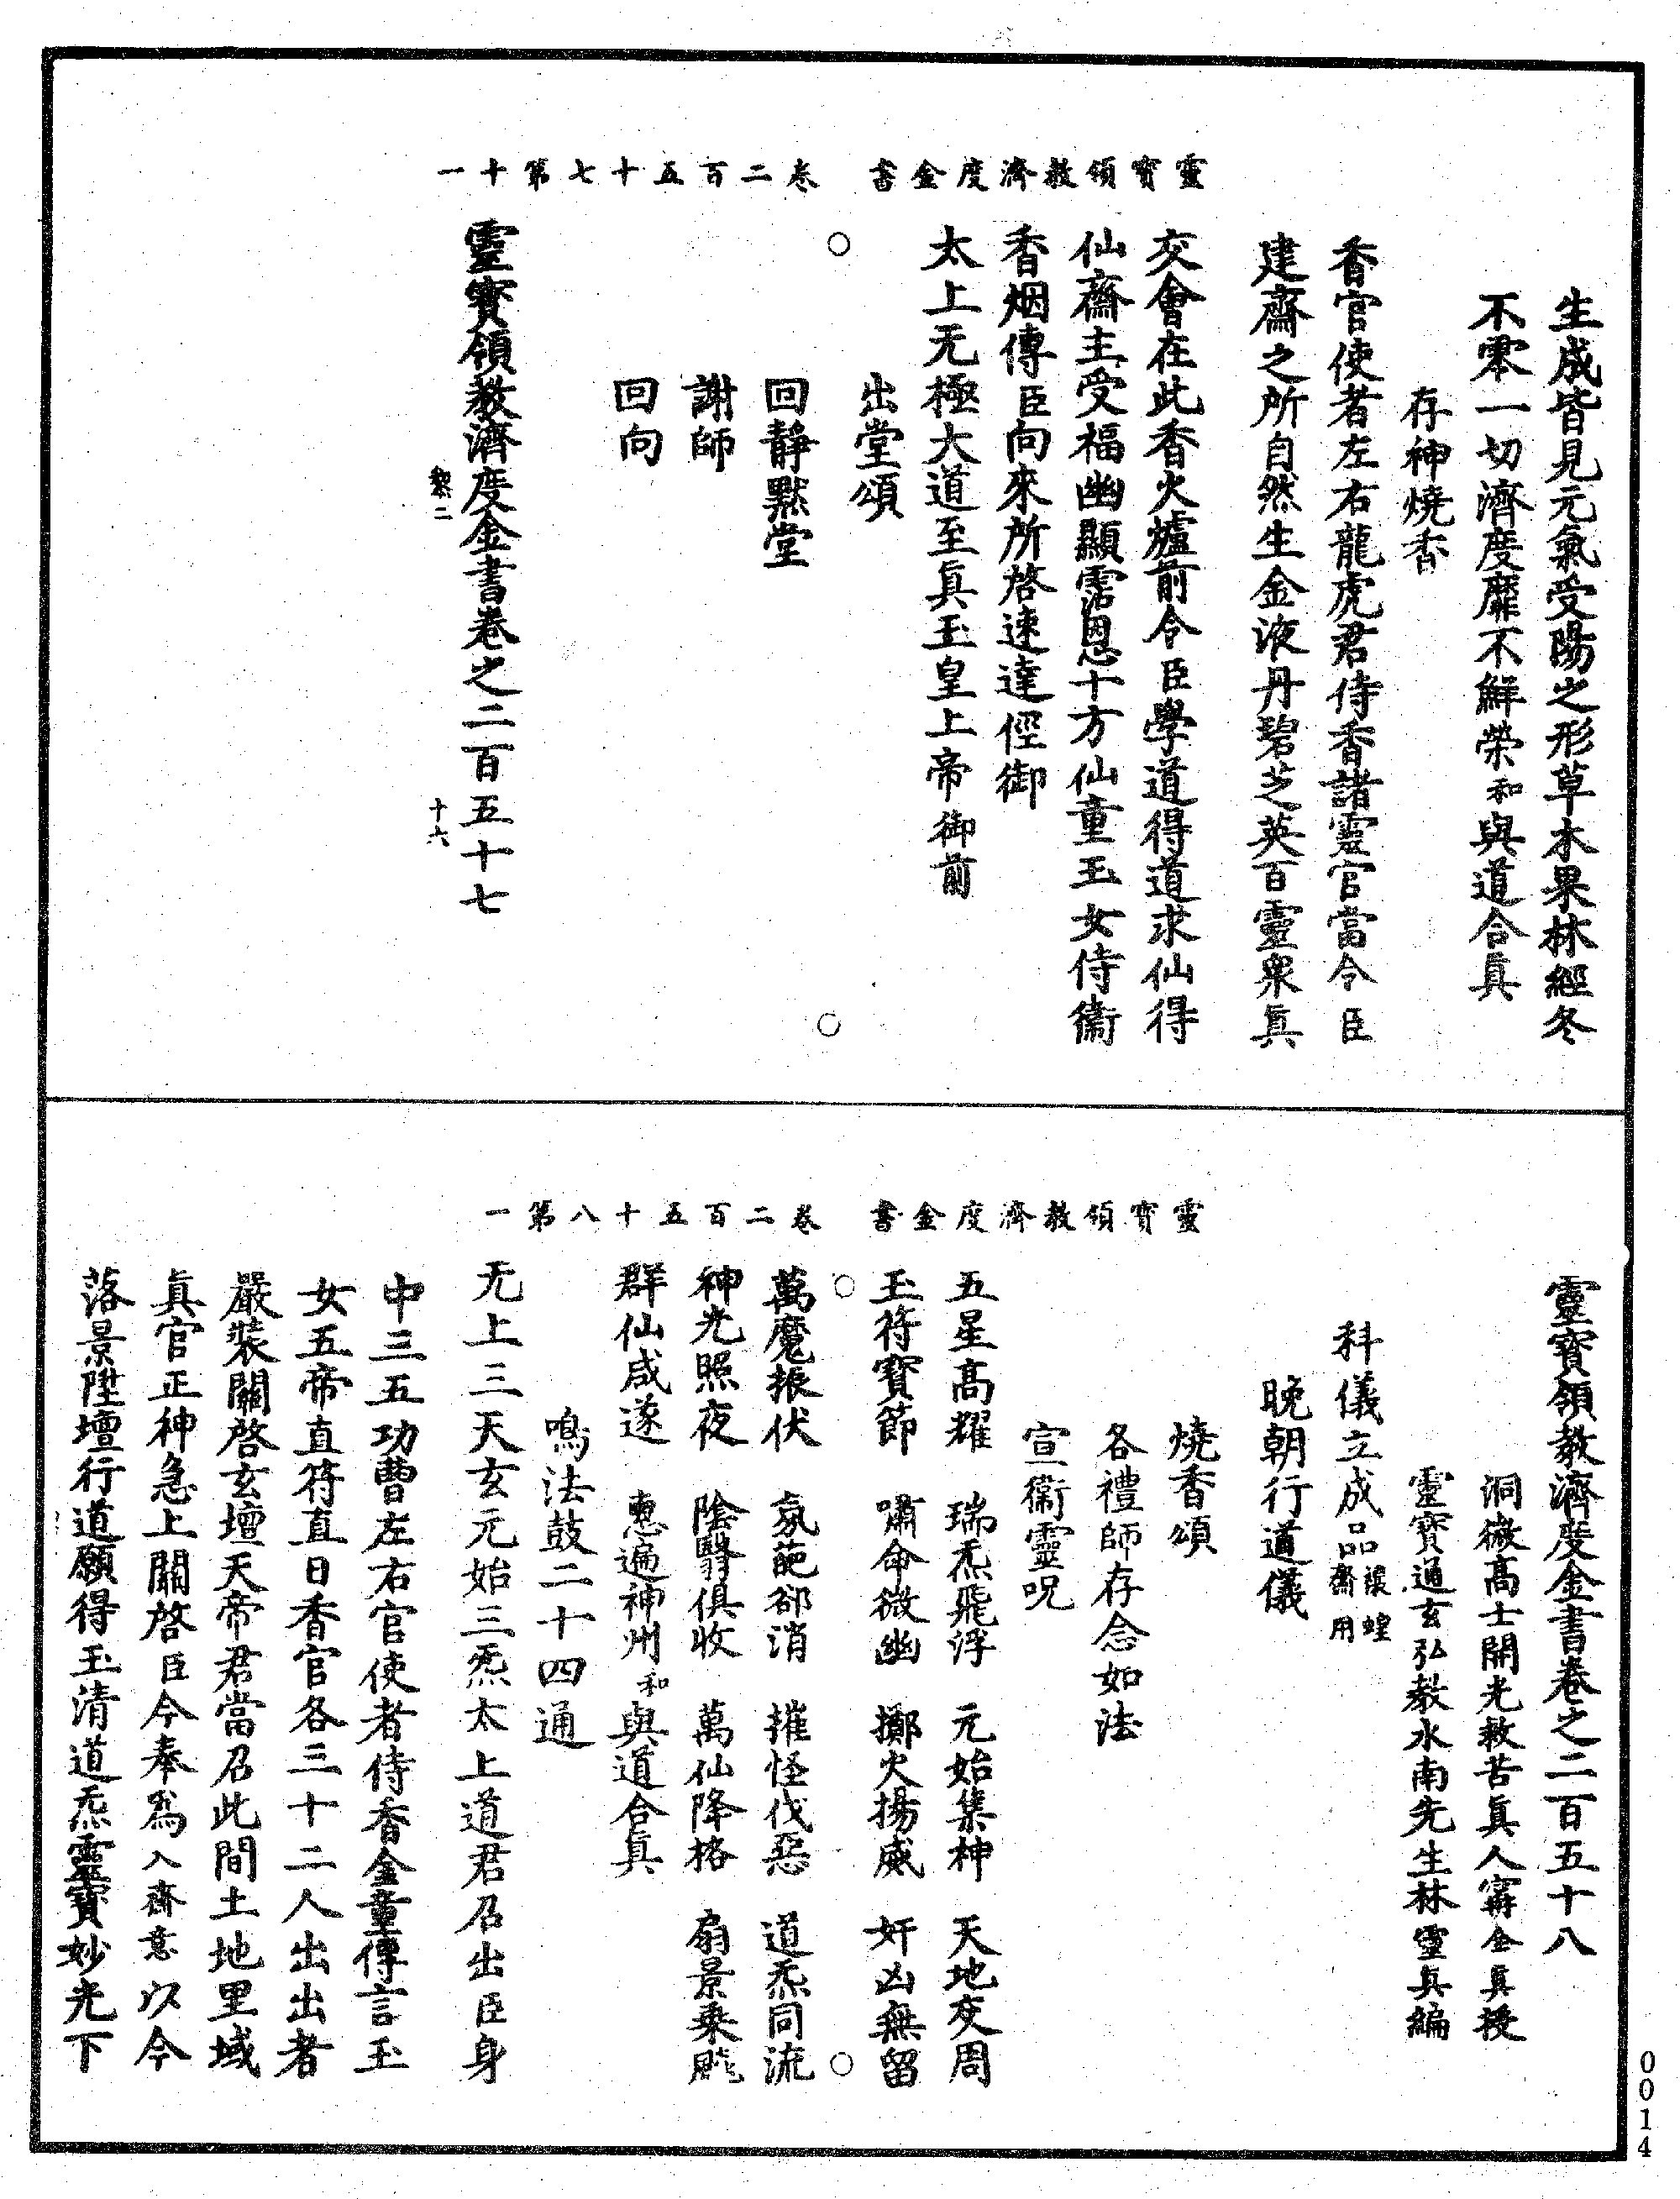 靈寶領教濟度金書　卷二百五十七第十一
生成皆見元氣受陽之形草木果林經冬
不零一切濟度靡不鮮榮和與道合眞
存神燒香
香官使者左右龍虎君侍香諸靈官當令臣
建齋之所自然生金液丹碧芝英百靈衆眞
交會在此香火爐前令臣學道得道求仙得
仙齋主受福幽顯霑恩十方仙童玉女侍衞
香烟傳臣向來所啓速達徑御
太上无極大道至眞玉皇上帝御前
出堂頌
回靜默堂
謝師
回向
靈寶領教濟度金書卷之二百五十七
二　十六
靈寶領教濟度金書　卷二百五十八第一
靈寶領教濟度金書卷之二百五十八
洞微高士開光救苦眞人甯全眞授
靈寶通玄弘教水南先生林靈眞編
科儀立成品禳蝗齋用
晚朝行道儀
燒香頌
各禮師存念如法
宣衞靈呪
五星高耀　瑞炁飛浮　元始集神　天地交周
玉符寶節　嘯命微幽　擲火揚威　奸凶無留
萬魔振伏　氛葩郤消　摧怪伐惡　道炁同流
神光照夜　陰翳俱收　萬仙降格　扇景乘飈
群仙咸遂　惠遍神州和與道合眞
鳴法鼓二十四通
无上三天玄元始三炁太上道君召出臣身
中三五功曹左右官使者侍香金童傳言玉
女五帝直符直日香官各三十二人出出者
嚴裝關啓玄壇天帝君當召此間土地里域
眞官正神急上關啓臣今奉爲入齋意以今
落景陞壇行道願得玉清道炁靈寶妙光下
0014